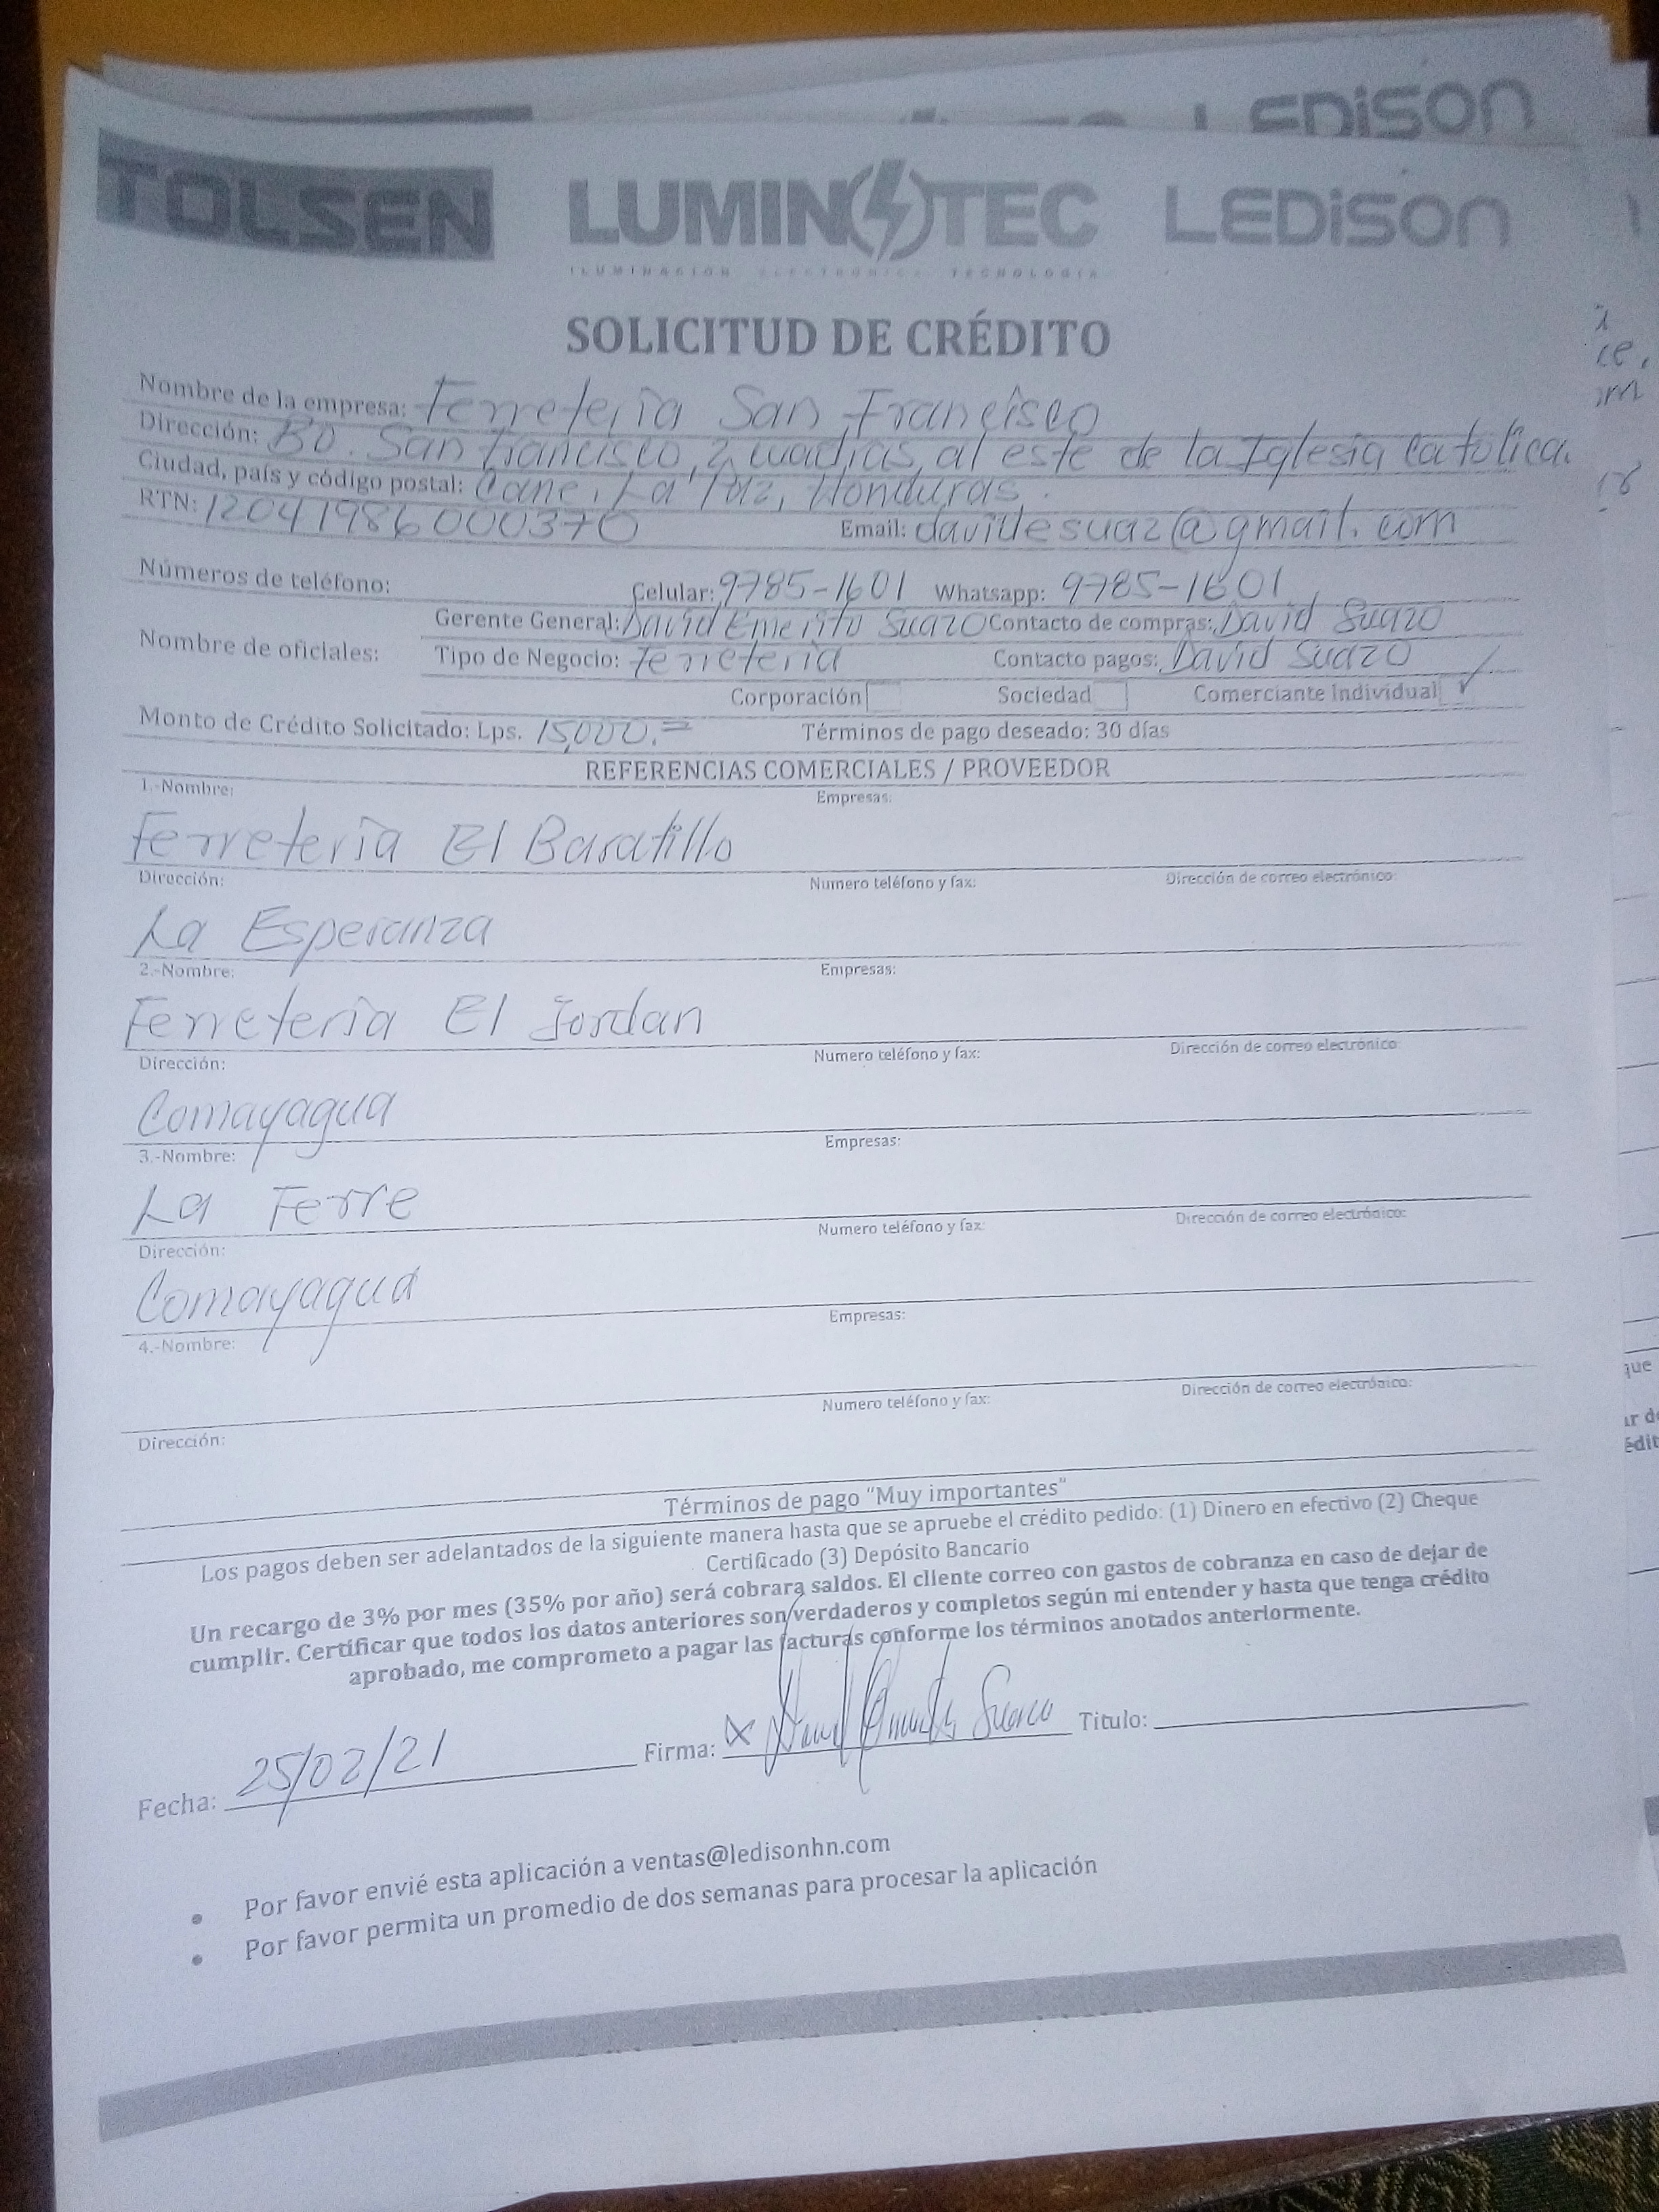 LEDISON
TOLSEN LUMINOTEC LEDISON
ILUMINACION ELECTRONICA TECNOLOGIA
SOLICITUD DE CRÉDITO
Nombre de la empresa: Ferretería San Francisco
Dirección: Bo. San francisco, 2 cuadras, al este de la Iglesia Catolica.
Ciudad, país y código postal: Cane, La Paz, Honduras.
RTN: 12041986000370 Email: davidesuaz@gmail.com
Números de teléfono: Celular: 9785-1601 Whatsapp: 9785-1601
Gerente General: David Emerito Suazo Contacto de compras: David Suazo
Nombre de oficiales: Tipo de Negocio: Ferreteria Contacto pagos: David Suazo
Corporación Sociedad Comerciante Individual ✓
Monto de Crédito Solicitado: Lps. 15,000.= Términos de pago deseado: 30 días
REFERENCIAS COMERCIALES / PROVEEDOR
1.-Nombre: Empresas:
Ferretería El Baratillo
Dirección: Numero teléfono y fax: Dirección de correo electrónico:
La Esperanza
2.-Nombre: Empresas:
Ferretería El Jordan
Dirección: Numero teléfono y fax: Dirección de correo electrónico:
Comayagua
3.-Nombre: Empresas:
La Ferre
Dirección: Numero teléfono y fax: Dirección de correo electrónico:
Comayagua
4.-Nombre: Empresas:
Dirección: Numero teléfono y fax: Dirección de correo electrónico:
Términos de pago "Muy importantes"
Los pagos deben ser adelantados de la siguiente manera hasta que se apruebe el crédito pedido: (1) Dinero en efectivo (2) Cheque
Certificado (3) Depósito Bancario
Un recargo de 3% por mes (35% por año) será cobrara saldos. El cliente correo con gastos de cobranza en caso de dejar de
cumplir. Certificar que todos los datos anteriores son verdaderos y completos según mi entender y hasta que tenga crédito
aprobado, me comprometo a pagar las facturas conforme los términos anotados anteriormente.
Fecha: 25/02/21 Firma: X David Emerito Suazo Titulo:
• Por favor envié esta aplicación a ventas@ledisonhn.com
• Por favor permita un promedio de dos semanas para procesar la aplicación